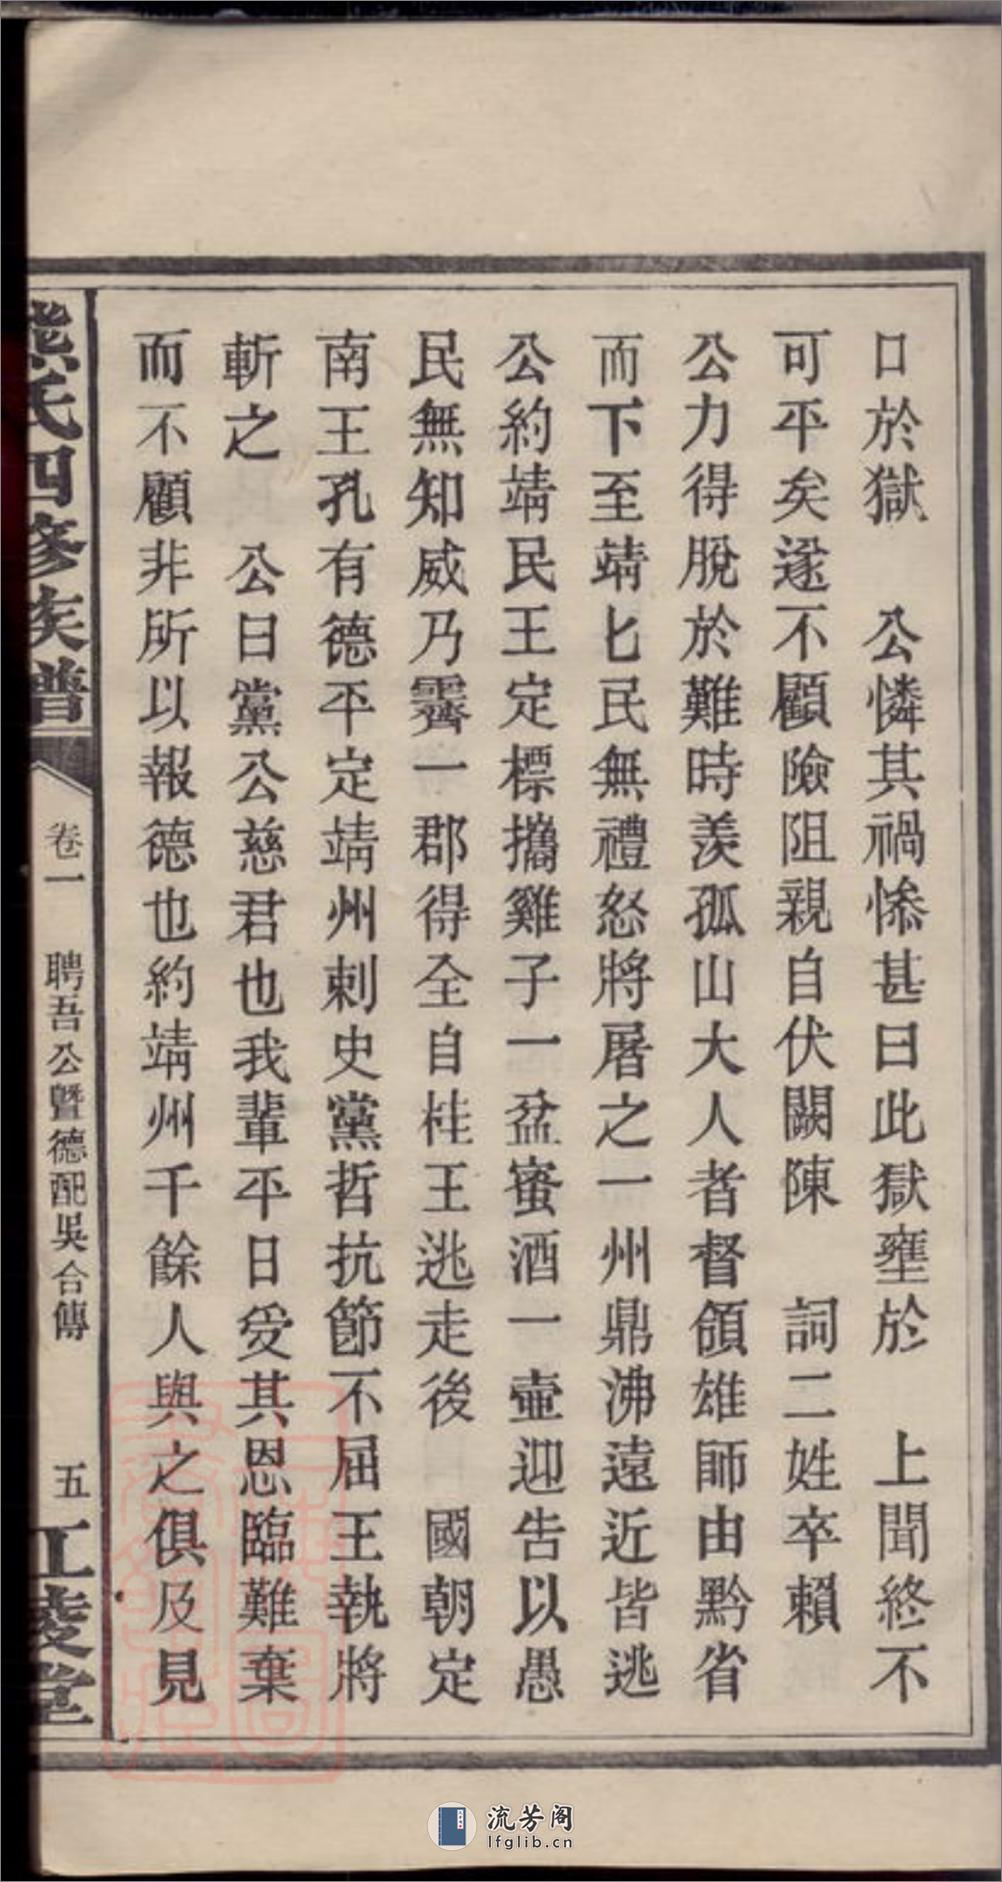 口於獄　公憐其禍慘甚曰此獄壅於　上聞終不
可平矣遂不顧險阻親自伏闕陳　詞二姓卒賴
公力得脫於難時羨孤山大人者督領雄師由黔省
而下至靖匕民無禮怒將屠之一州鼎沸遠近皆逃
公約靖民王定標攜雞子一盆蜜酒一壺迎告以愚
民無知威乃霽一郡得全自桂王逃走後　國朝定
南王孔有德平定靖州刺史黨哲抗節不屈王執將
斬之　公曰黨公慈君也我輩平日受其恩臨難棄
而不顧非所以報德也約靖州千餘人與之俱及見
熊氏四修族譜
卷一　聘吾公暨德配吳合傳　五
江陵堂
流芳阁
lfglib.cn